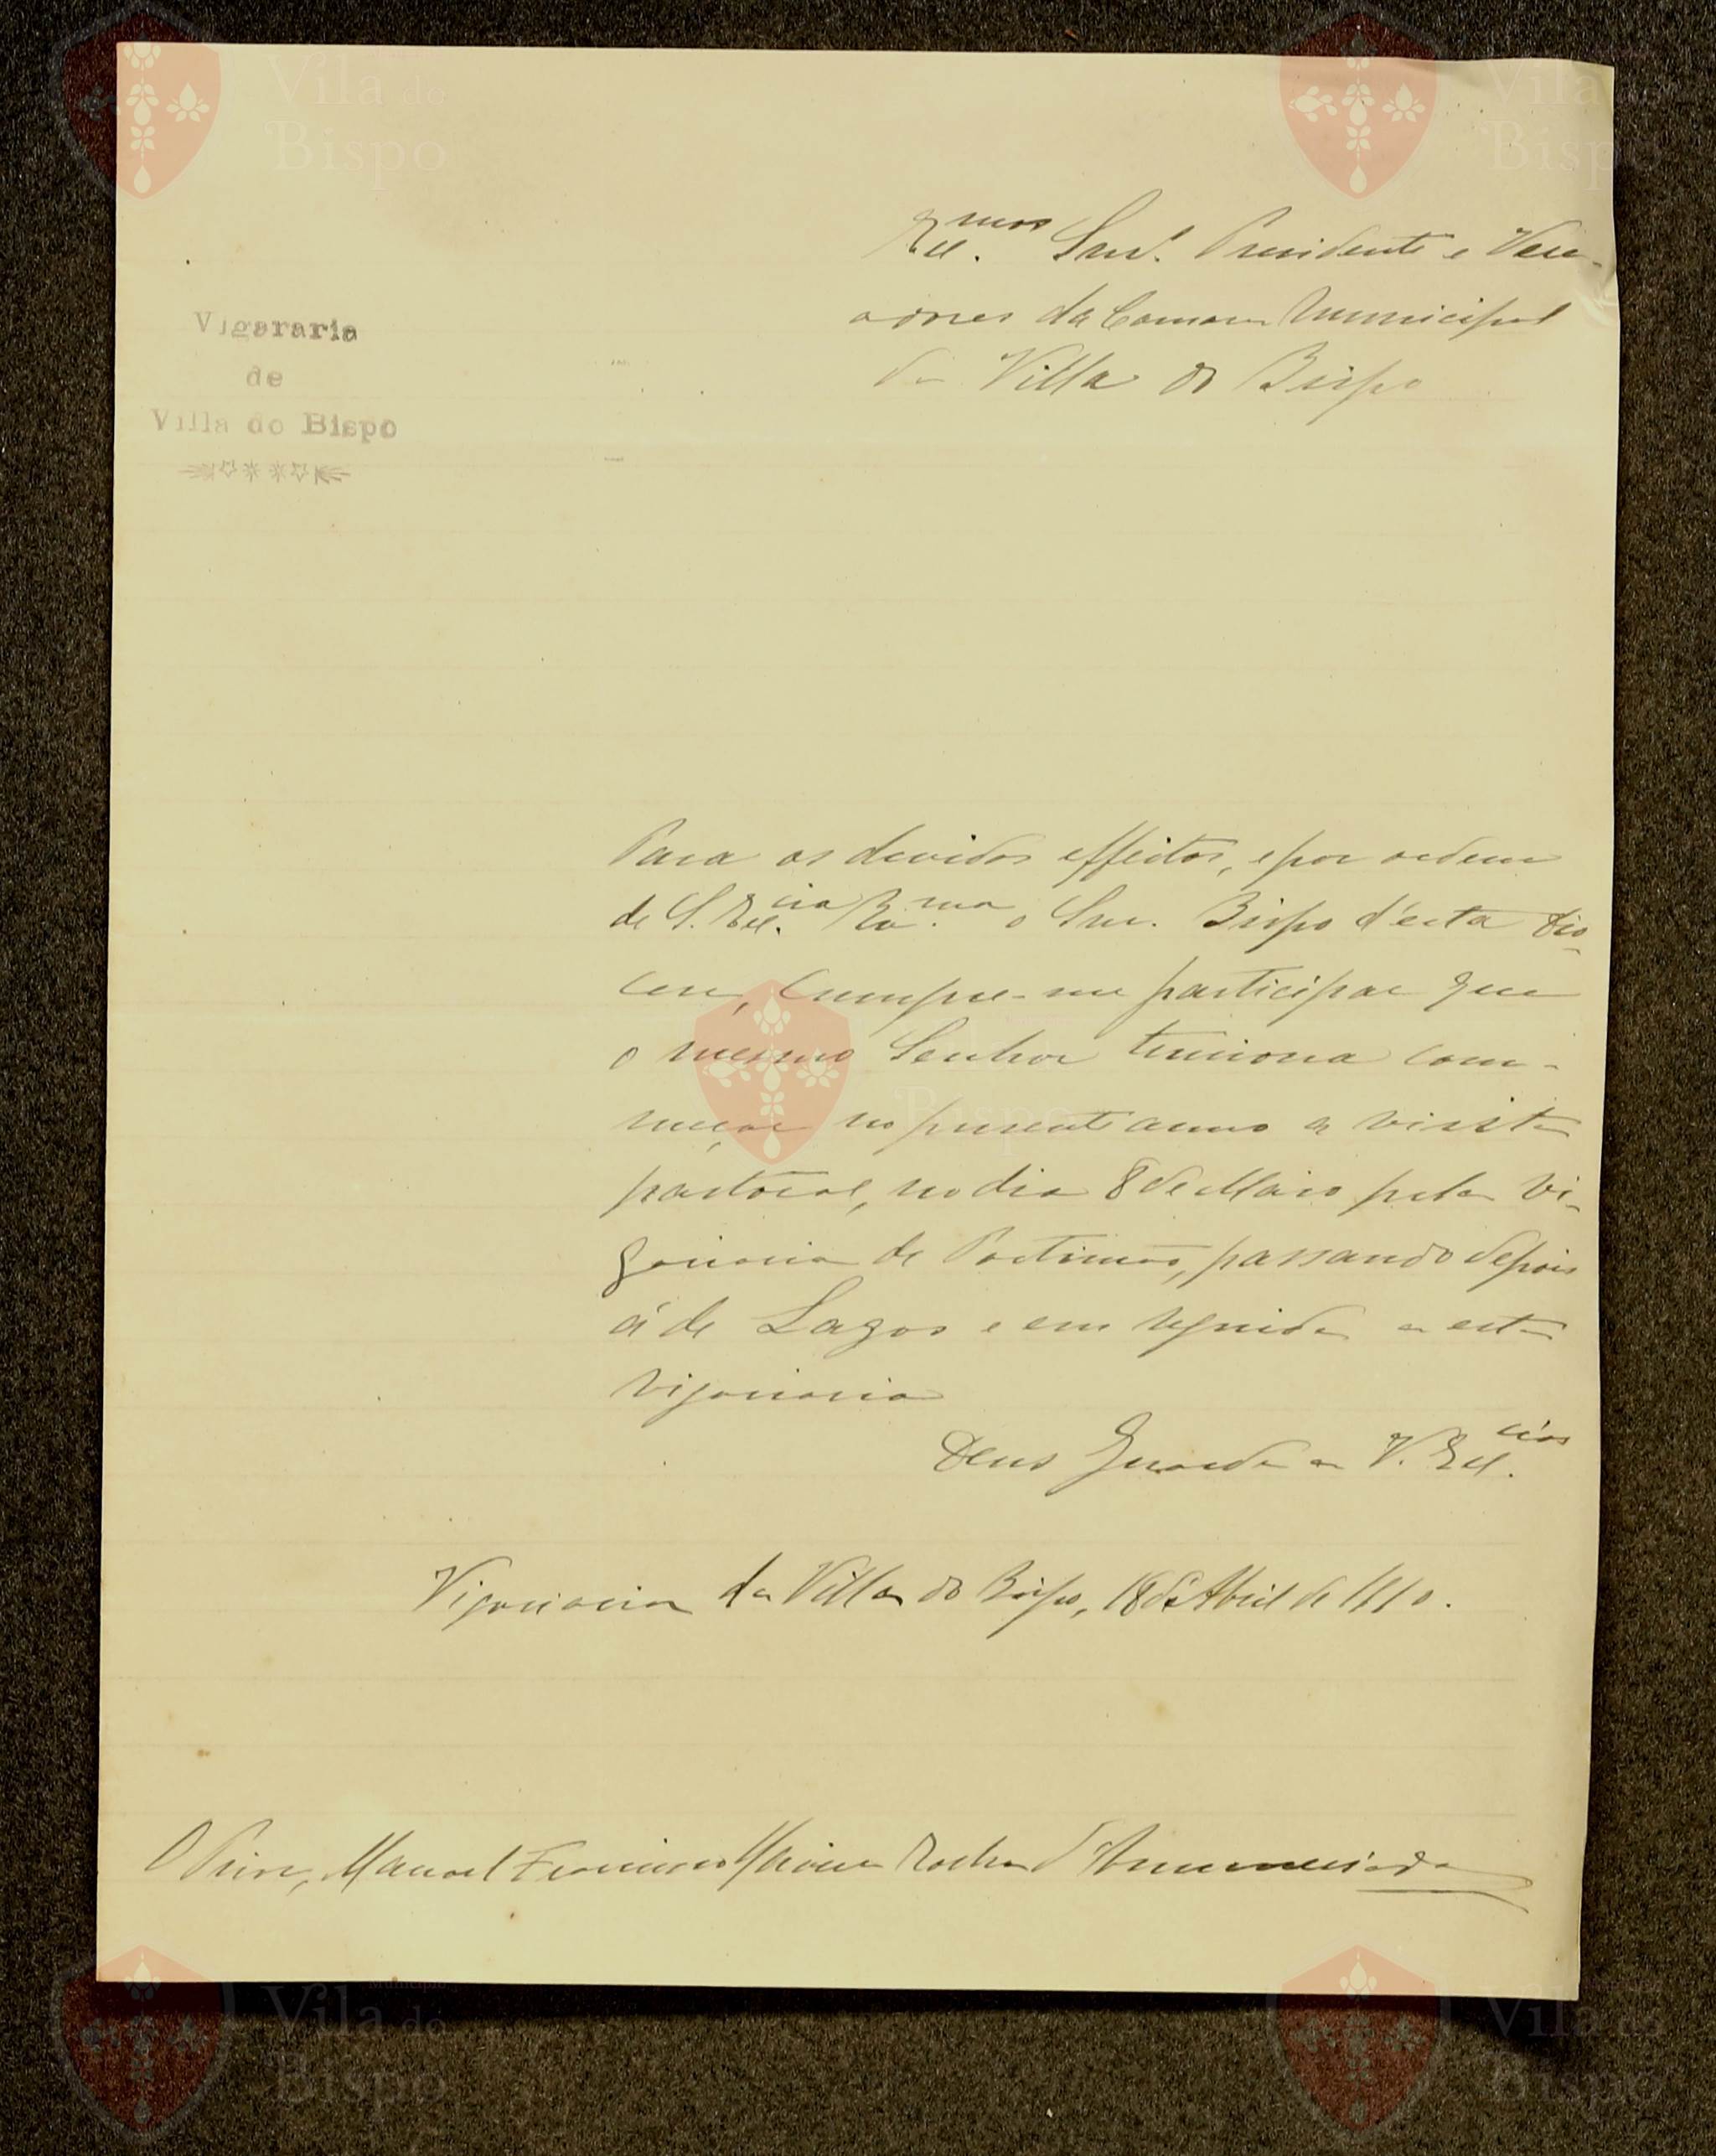 Vila do
Bispo
Vila do
Bispo
Ex.mos Snrs. Presidente e Vere-
adores da Camara Municipal
da Villa do Bispo
Vigararia
de
Villa do Bispo
Para os devidos effeitos, e por ordem
de S. Ex.cia Rv.ma o Snr. Bispo d'esta Dio-
cese, cumpre-me participar que
o mesmo Senhor tenciona com-
meçar no presente anno a visita
pastoral, no dia 8 de Maio pela Vi-
gariaria de Portimão, passando depois
á de Lagos e em seguida a esta
vigariaria
Vila do
Bispo
Deus Guarde a V. Ex.cias
Vigariaria da Villa do Bispo, 18 de Abril de 1910.
O Prior, Manoel Francisco Rocha d'Annunciada
Município
Vila do
Bispo
Vila do
Bispo